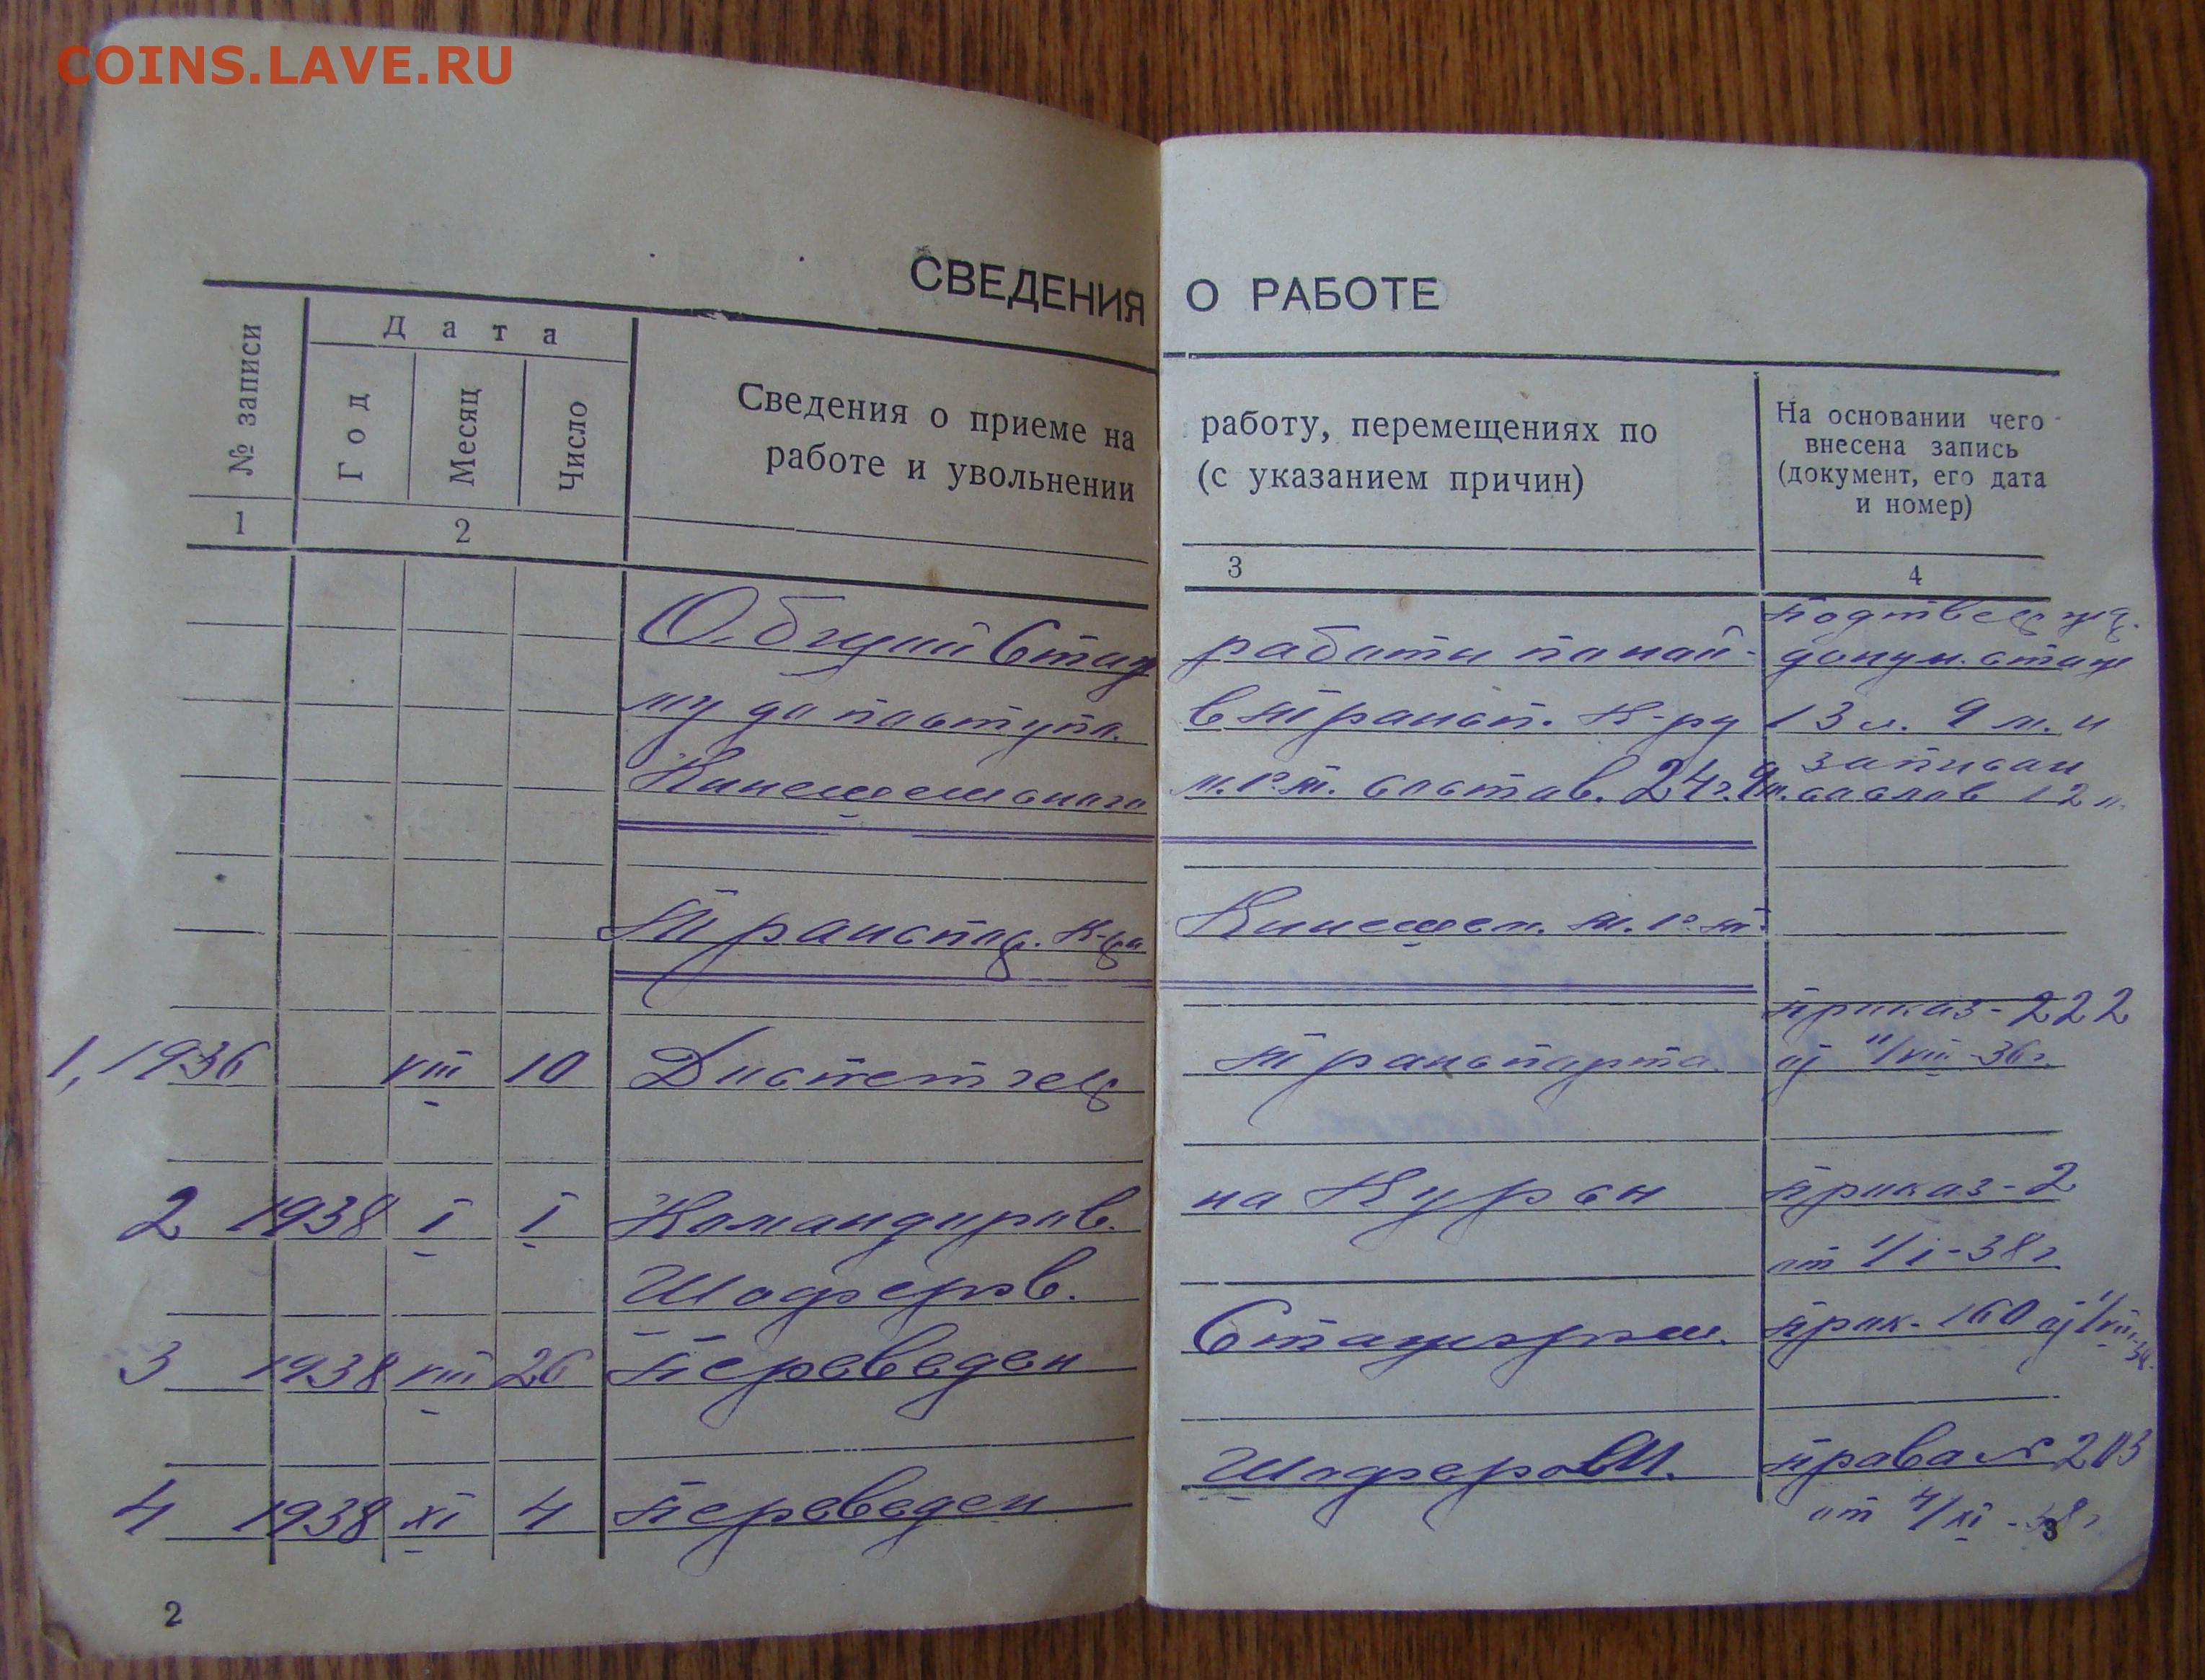 COINS.LAVE.RU
СВЕДЕНИЯ О РАБОТЕ
№ записи
Дата
Год
Месяц
Число
Сведения о приеме на работу, перемещениях по
работе и увольнении (с указанием причин)
На основании чего
внесена запись
(документ, его дата
и номер)
1 2 3 4
Общий Стаж работы по най- подтвержд.
му до поступл. в трансп. К-ру докум. стаж
13 л. 9 м. и
Кинешемского состав. 24 г. 9 м. записан
со слов 12
Транспор. К-ра Кинешем.
приказ-222
1, 1936 VIII 10 Диспетчер транспорта 11/VIII-36г.
2 1938 I I Командиров. на Курсы приказ-2
Шоферов. от 1/I-38г
3 1938 VIII 26 переведен Стажером. прик. 160
4 1938 XI 4 переведен Шофером. права № 203
от 4/XI-38г
2
3